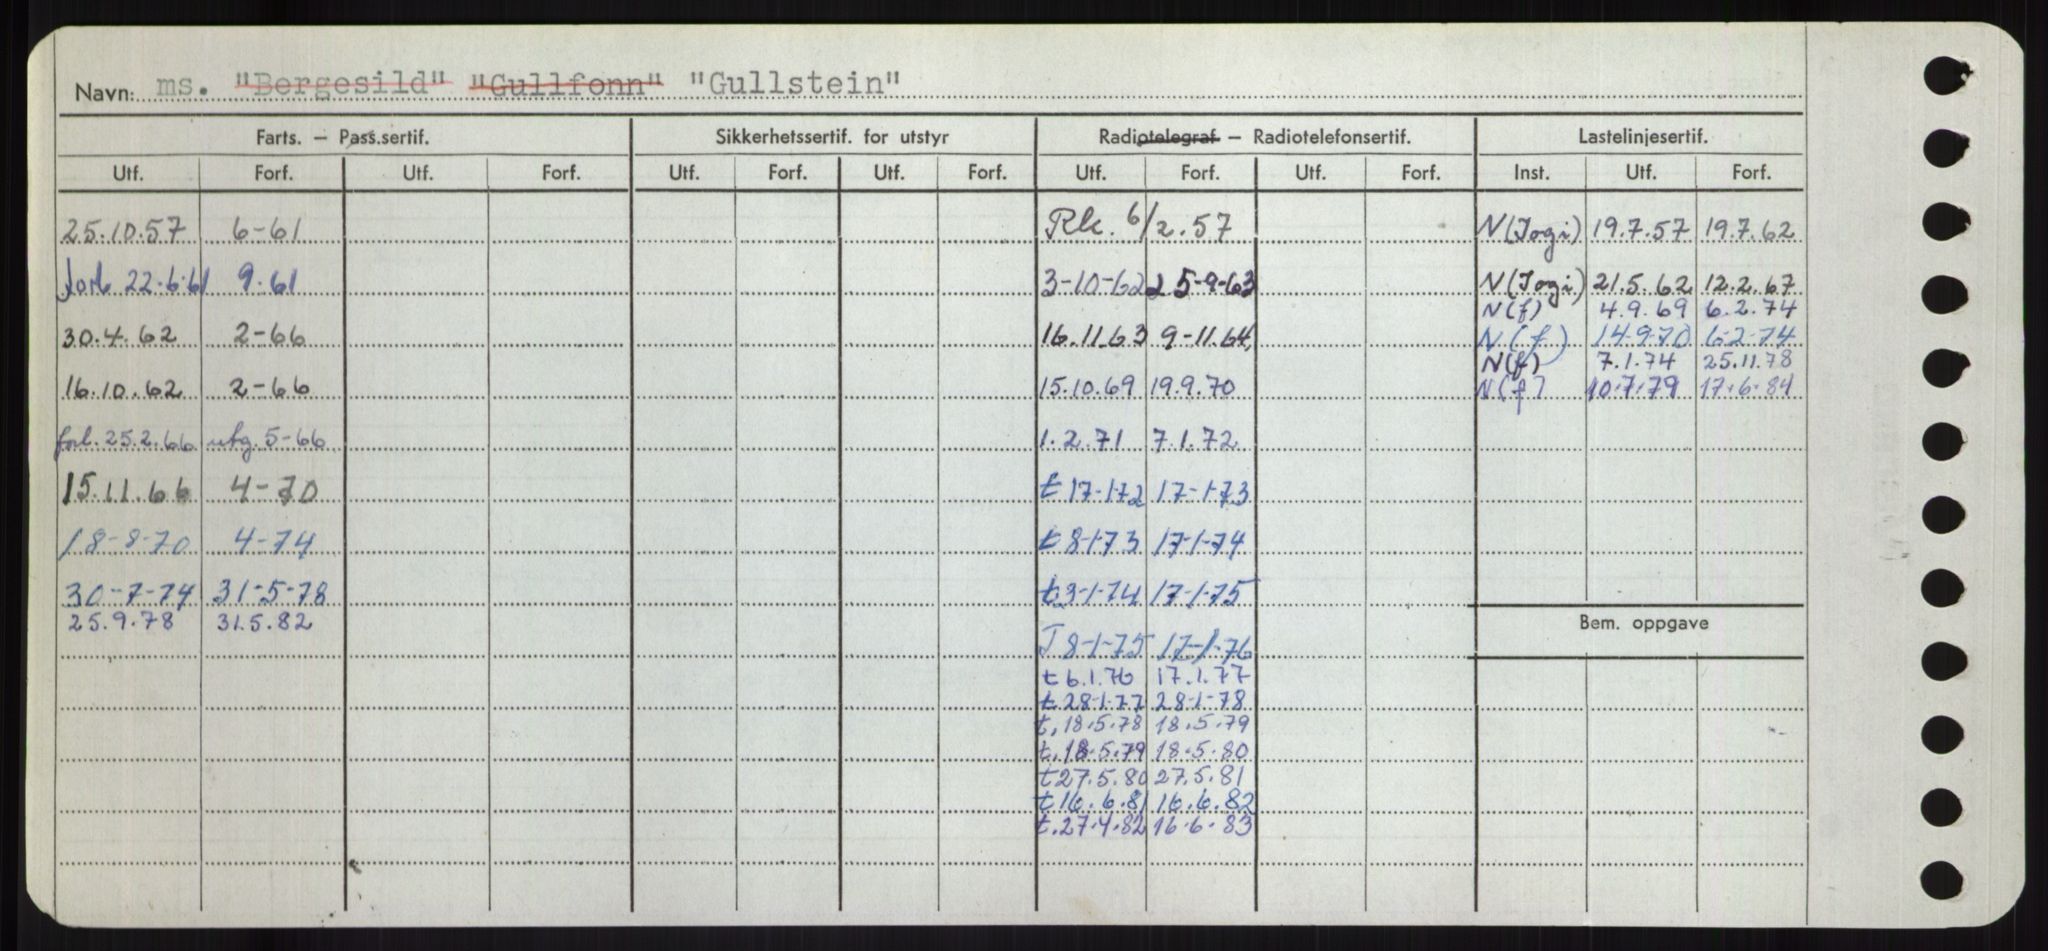 Navn: ms. "Bergesild" "Gullfonn" "Gullstein"
Farts. – Pass.sertif. Sikkerhetssertif. for utstyr Radiotelegraf – Radiotelefonsertif. Lastelinjesertif.
Utf. Forf. Utf. Forf. Utf. Forf. Utf. Forf. Utf. Forf. Utf. Forf. Inst. Utf. Forf.
25.10.57 6-61 Rk. 6/2.57 N(Togi) 19.7.57 19.7.62
22.6.61 9.61 3-10-62 25-9-63 N(Togi) 21.5.62 12.2.67
N(f) 4.9.69 6.2.74
30.4.62 2-66 16.11.63 9-11.64 N(f) 14-9-70 6-2-74
N(f) 7.1.74 25.11.78
16.10.62 2-66 15.10.69 19.9.70 N(f) 10.7.79 17.6.84
forl. 25.2.66 utg. 5-66 1.2.71 7.1.72
15.11.66 4-70 t 17-1-72 17-1-73
18-8-70 4-74 t 8-1-73 17-1-74
30-7-74 31-5-78 t 3-1-74 17-1-75
25.9.78 31.5.82 Bem. oppgave
T 8-1-75 17-1-76
t 6.1.76 17.1.77
t 28-1-77 28-1-78
t. 18.5.78 18.5.79
t. 18.5.79 18.5.80
t 27.5.80 27.5.81
t 16.6.81 16.6.82
t. 27.4.82 16.6.83